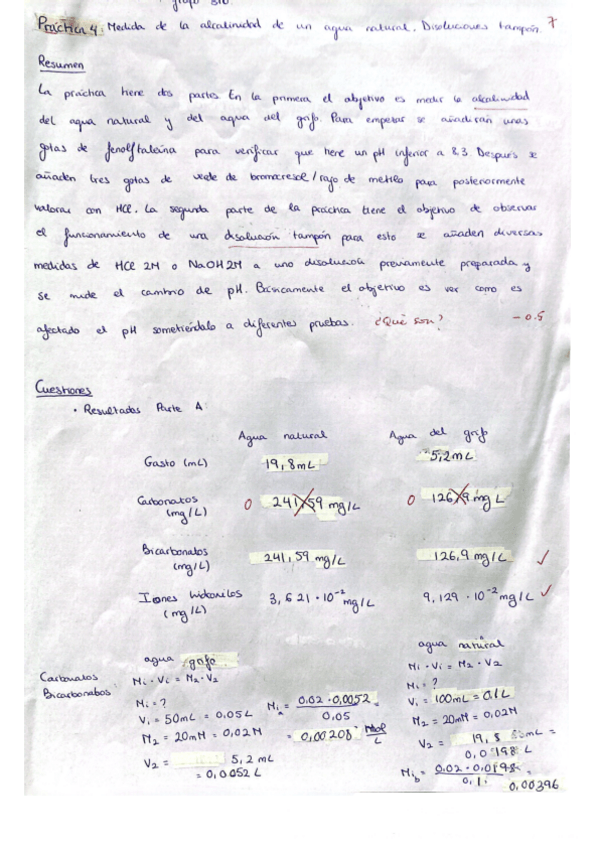 grupo
Práctica 4: Medida de la alcalinidad de un agua natural. Disoluciones tampón. 7
Resumen
La práctica tiene dos partes. En la primera el objetivo es medir la alcalinidad
del agua natural y del agua del grifo. Para empezar se añadirán unas
gotas de fenolftaleína para verificar que tiene un pH inferior a 8,3. Después se
añaden tres gotas de verde de bromocresol/rojo de metilo para posteriormente
valorar con HCl. La segunda parte de la práctica tiene el objetivo de observar
el funcionamiento de una disolución tampón para esto se añaden diversas
medidas de HCl 2M o NaOH 2M a una disolución previamente preparada y
se mide el cambio de pH. Básicamente el objetivo es ver como es
afectado el pH sometiéndolo a diferentes pruebas. ¿Qué son? -0.5
Cuestiones
• Resultados Parte A:
Agua natural Agua del grifo
Gasto (mL) 19,8 mL 5,2 mL
Carbonatos (mg/L) 0 241,59 mg/L 0 126,9 mg/L
Bicarbonatos (mg/L) 241,59 mg/L 126,9 mg/L
Iones hidroxilos (mg/L) 3,621·10⁻² mg/L 9,129·10⁻² mg/L
Carbonatos
Bicarbonatos:
agua grifo
M₁·V₁ = M₂·V₂
M₁ = ?
V₁ = 50mL = 0,05L
M₂ = 20mM = 0,02M
V₂ = 5,2 mL
= 0,0052 L
M₁ₐ = 0,02·0,0052 / 0,05 =
= 0,00208 mol/L
agua natural
M₁·V₁ = M₂·V₂
M₁ = ?
V₁ = 100mL = 0,1L
M₂ = 20mM = 0,02M
V₂ = 19,8 mL =
0,0198 L
M₁b = 0,02·0,0198 / 0,1 =
0,00396